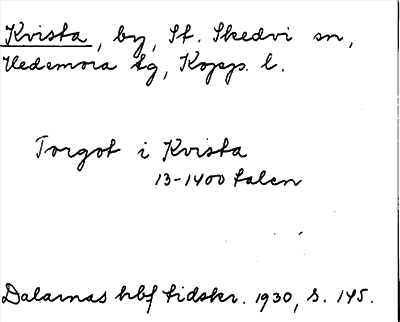 Kvista, by, St. Skedvi sn,
Hedemora tg, Kopp. l.
Torgot i Kvista
13-1400 talen
Dalarnas hbf tidskr. 1930, s. 145.